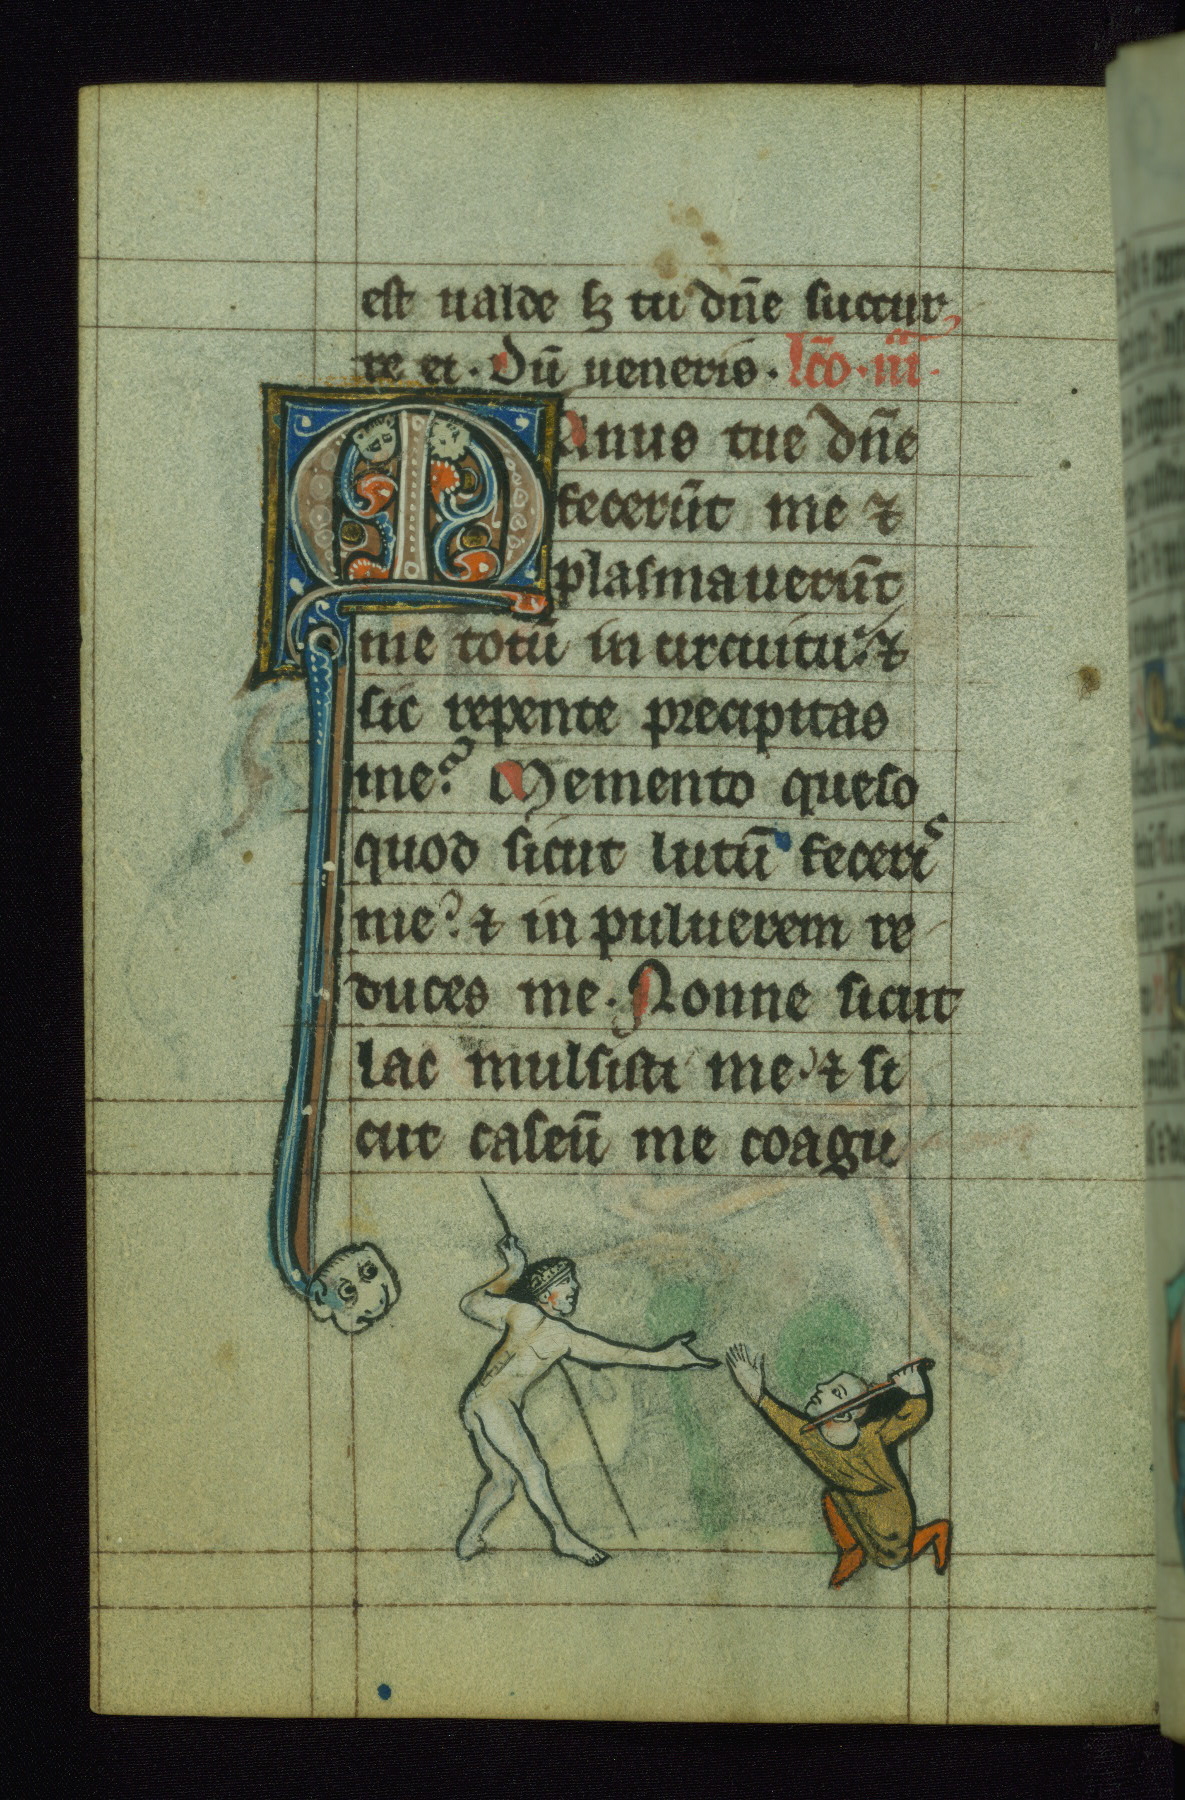 est ualde sꝫ tu dn̄e succur
re ei. Dū ueneris. lc̄o. iii.
Manus tue dn̄e
fecerūt me ⁊
plasmauerūt
me totū in circuitu: ⁊
sic repente precipitas
me? Memento queso
quod sicut lutū feceris
me? ⁊ in puluerem re
duces me. Nonne sicut
lac mulsisti me. ⁊ si
cut caseū me coagu